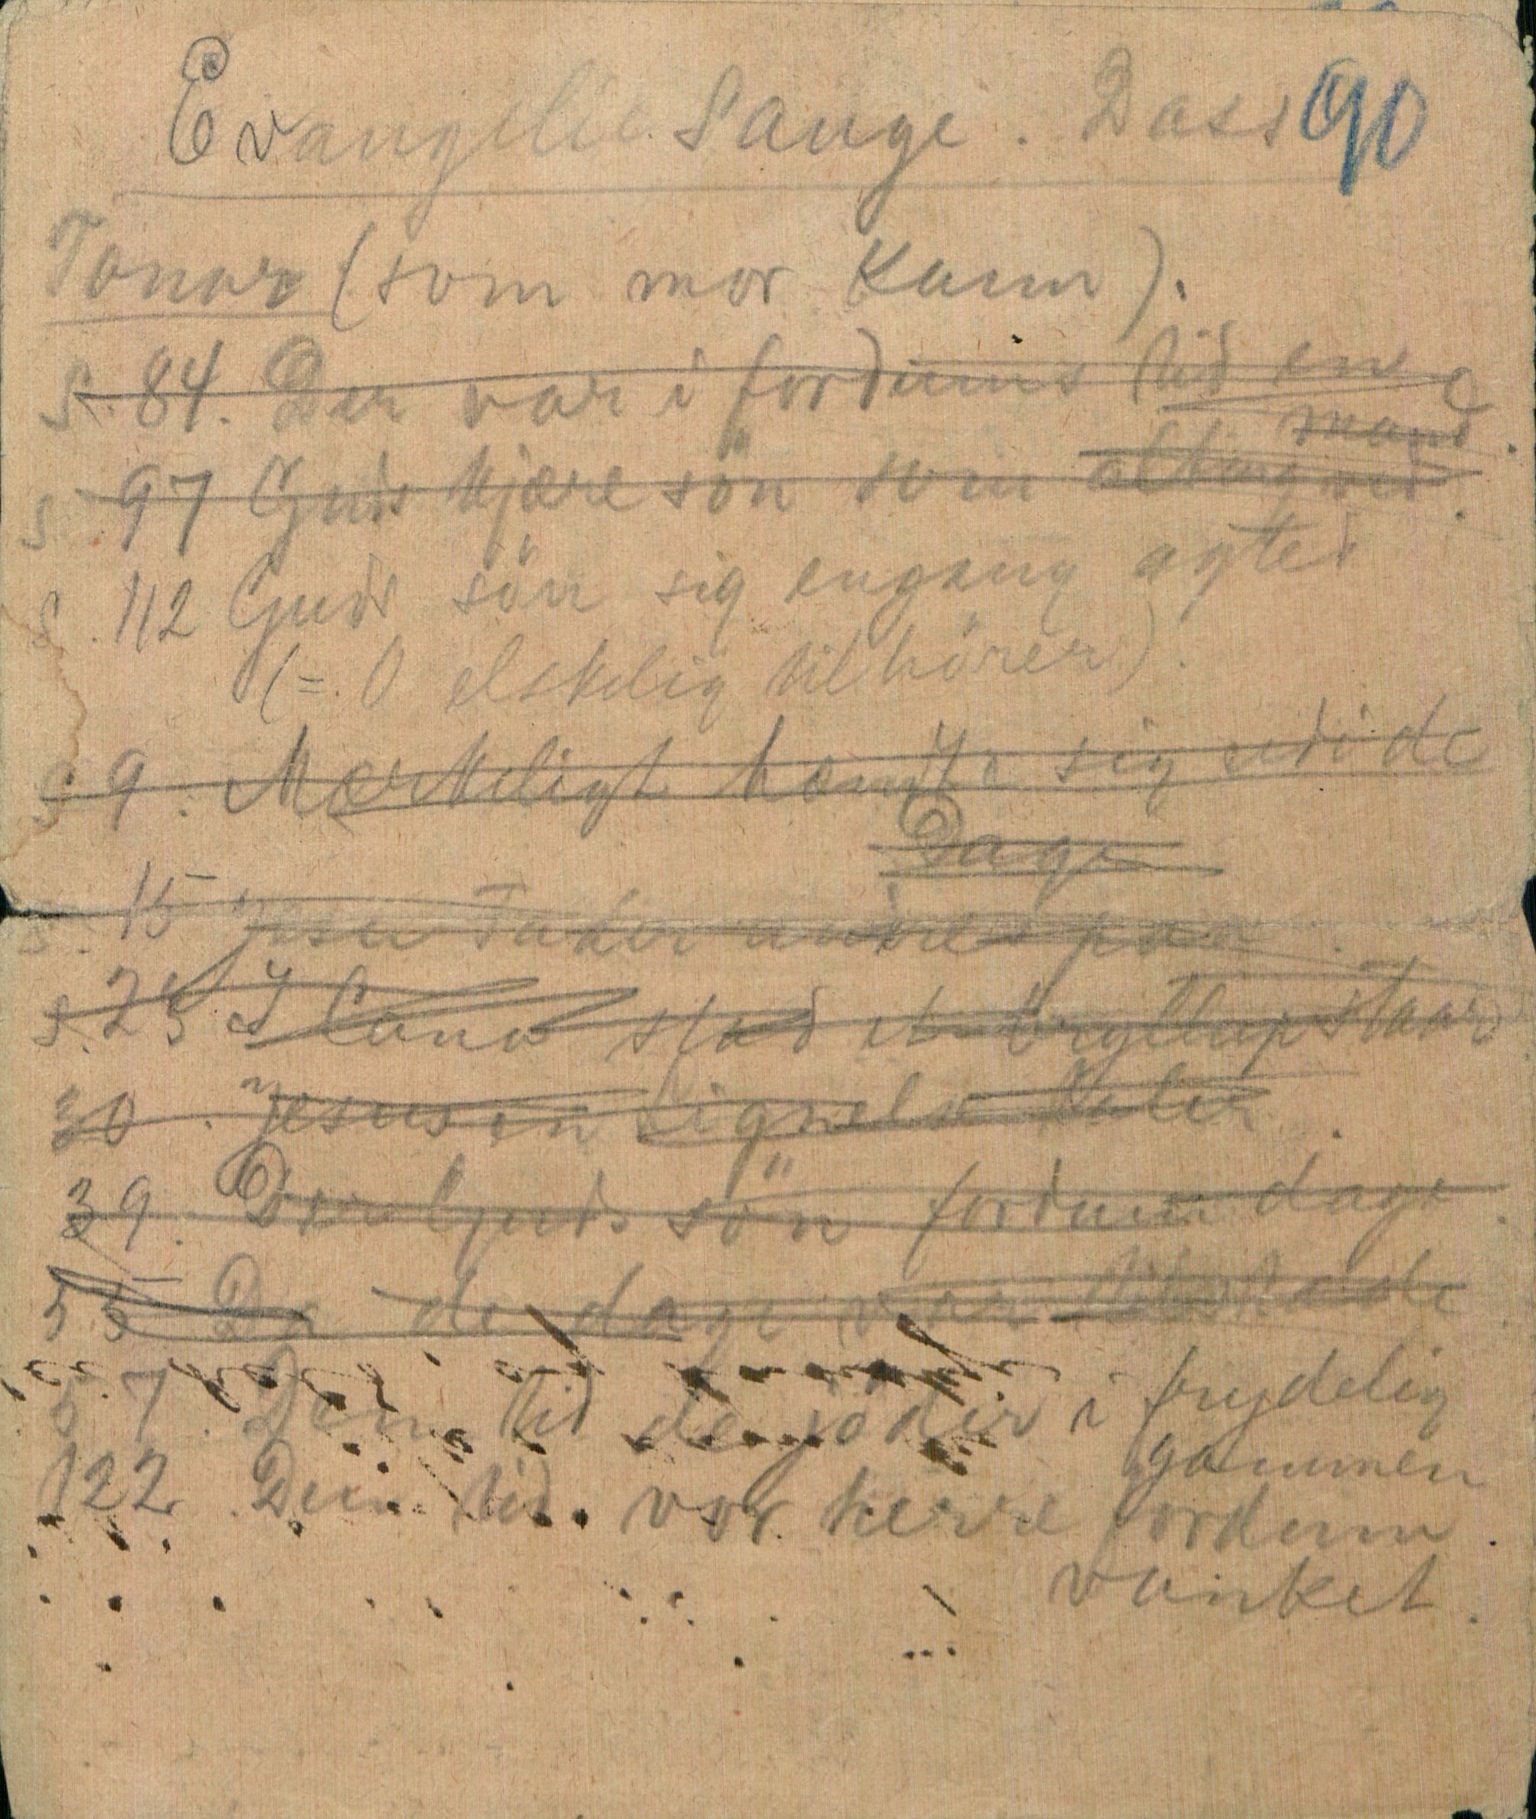 Evangelie Sange. Dass 90
Tonar (som mor kann).
S. 84. Der var i fordums tid en
mand.
S. 97 Guds kjære sön som alting ved.
S. 112 Guds sön sig engang agted
(=. O elskelig tilhörer).
S 9. Mærkeligt hændte sig udi de
Dage
S. 15 Jesu
S. 25 I Cana stad et bryllup staar
30. Jesus en lignelse taler.
39. Den Guds sön fordum dage.
55 Da de dage var
57. Den tid de jöder i frydelig
gammen
122 Den tid vor herre fordum
vanket.